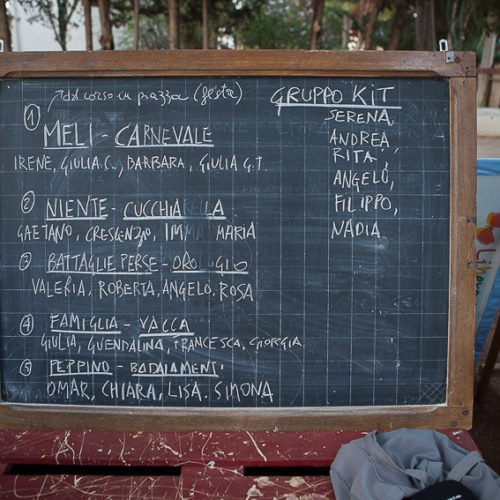 corso in piazza (festa)
GRUPPO KIT
SERENA,
ANDREA,
RITA,
ANGELO,
FILIPPO,
NADIA
1 MELI - CARNEVALE
IRENE, GIULIA C., BARBARA, GIULIA G.T.
2 NIENTE - CUCCHIARELLA
GAETANO, CRESCENZIO, IMMA MARIA
3 BATTAGLIE PERSE - OROLOGIO
VALERIA, ROBERTA, ANGELO, ROSA
4 FAMIGLIA - VACCA
GIULIA, GUENDALINA, FRANCESCA, GIORGIA
5 PEPPINO - BADALAMENTI
OMAR, CHIARA, LISA. SIMONA